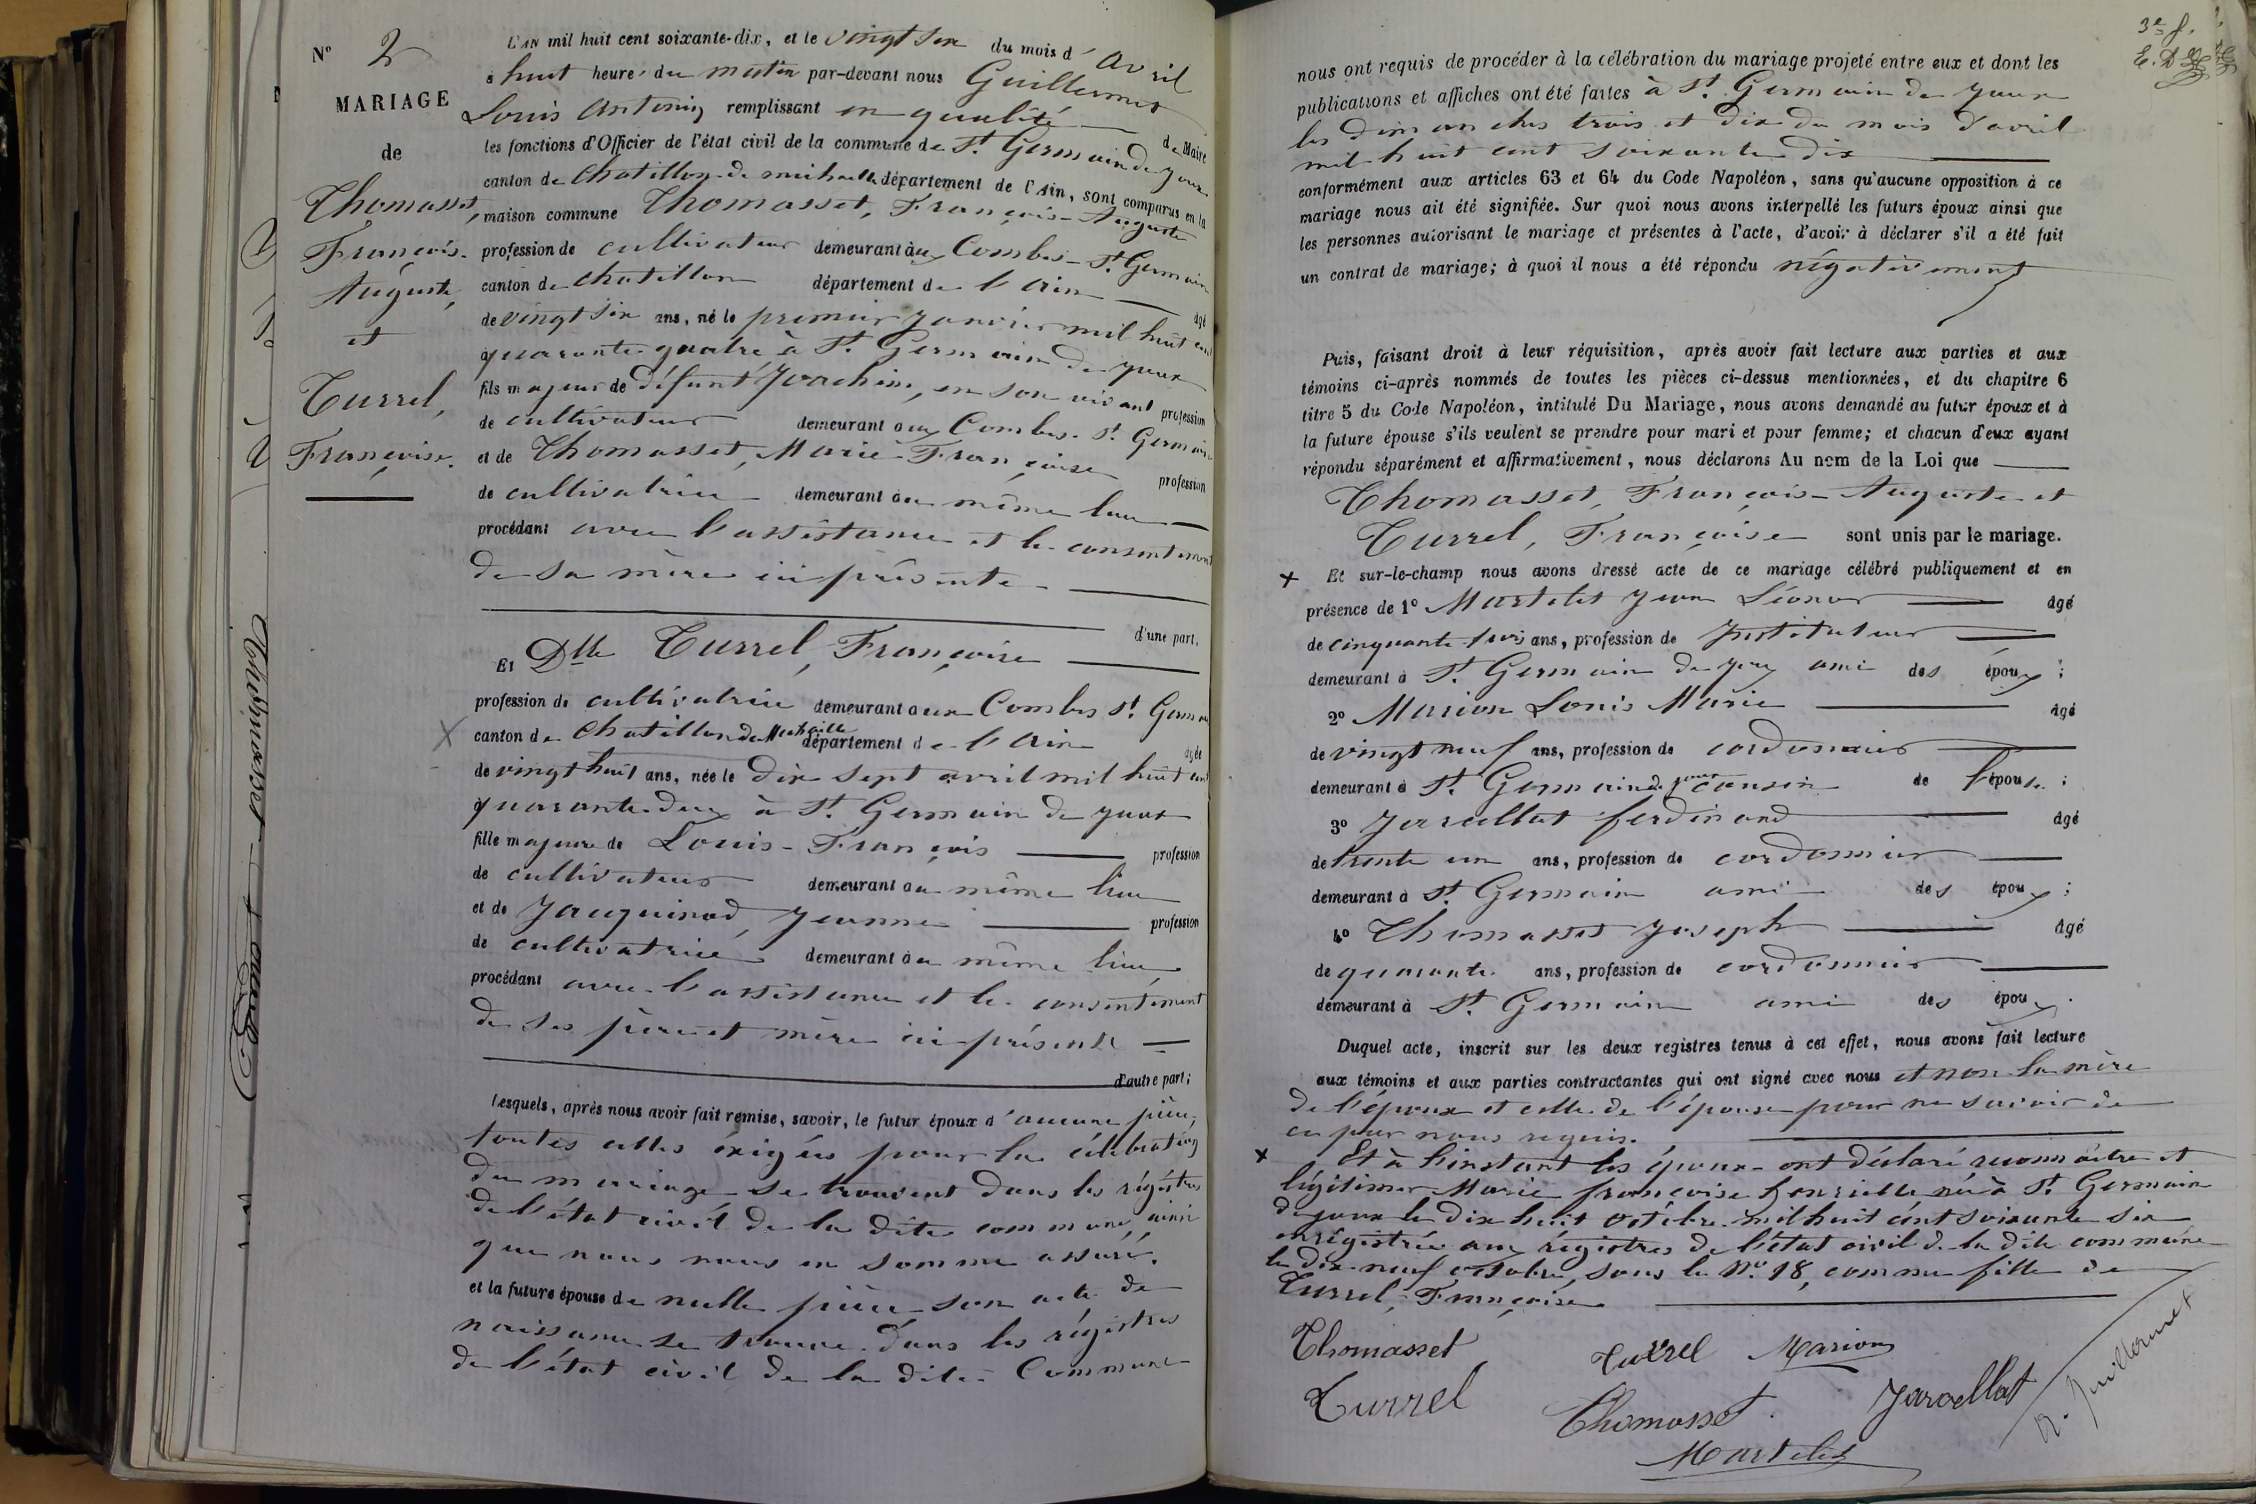 N° 2
MARIAGE
de
Thomasset,
François-
Auguste,
et
Turrel,
Françoise.
L'AN mil huit cent soixante-dix, et le vingt six du mois d'Avril
à huit heures du matin par-devant nous Guillermet
Louis Antonin remplissant en qualité de Maire
les fonctions d'Officier de l'état civil de la commune de St Germain de Joux
canton de Chatillon de michaille département de l'Ain, sont comparus en la
maison commune Thomasset, François-Auguste
profession de cultivateur demeurant aux Combes-St Germain
canton de Chatillon département de l'Ain âgé
de vingt six ans, né le premier janvier mil huit cent
quarante quatre à St Germain de Joux
fils majeur de défunt Joachim, en son vivant profession
de cultivateur demeurant aux Combes-St Germain
et de Thomasset, Marie-Françoise profession
de cultivatrice demeurant au même lieu
procédant avec l'assistance et le consentement
de sa mère ici présente
d'une part.
Et Dlle Turrel, Françoise
profession de cultivatrice demeurant aux Combes St Germain
canton de Chatillon de Michaille département de l'Ain âgée
de vingt huit ans, née le dix sept avril mil huit cent
quarante-deux à St Germain de Joux
fille majeure de Louis-François profession
de cultivateur demeurant au même lieu
et de Jacquinod, Jeanne profession
de cultivatrice demeurant au même lieu
procédant avec l'assistance et le consentement
de ses père et mère ici présents
d'autre part;
Lesquels, après nous avoir fait remise, savoir, le futur époux d'aucune pièce,
toutes celles éxigées pour la célébration
du mariage se trouvent dans les régistres
de l'état civil de la dite commune, ainsi
que nous nous en somme assuré.
et la future épouse de nulle pièce, son acte de
naissance se trouve dans les régistres
de l'état civil de la dite Commune
3e f.
nous ont requis de procéder à la célébration du mariage projeté entre eux et dont les
publications et affiches ont été faites à St Germain de Joux
les dimanches trois et dix du mois d'avril
mil huit cent soixante dix
conformément aux articles 63 et 64 du Code Napoléon, sans qu'aucune opposition à ce
mariage nous ait été signifiée. Sur quoi nous avons interpellé les futurs époux ainsi que
les personnes autorisant le mariage et présentes à l'acte, d'avoir à déclarer s'il a été fait
un contrat de mariage; à quoi il nous a été répondu négativement
Puis, faisant droit à leur réquisition, après avoir fait lecture aux parties et aux
témoins ci-après nommés de toutes les pièces ci-dessus mentionnées, et du chapitre 6
titre 5 du Code Napoléon, intitulé Du Mariage, nous avons demandé au futur époux et à
la future épouse s'ils veulent se prendre pour mari et pour femme; et chacun d'eux ayant
répondu séparément et affirmativement, nous déclarons Au nom de la Loi que
Thomasset, François-Auguste et
Turrel, Françoise sont unis par le mariage.
x Et sur-le-champ nous avons dressé acte de ce mariage célébré publiquement et en
présence de 1° Martelet Jean Léonor âgé
de cinquante trois ans, profession de Instituteur
demeurant à St Germain de Joux ami des époux;
2° Marion Louis Marie âgé
de vingt neuf ans, profession de cordonnier
demeurant à St Germain de Joux cousin de l'épouse;
3° Jarcellat ferdinand âgé
de trente un ans, profession de cordonnier
demeurant à St Germain ami des époux;
4° Thomasset Joseph âgé
de quarante ans, profession de cordonnier
demeurant à St Germain ami des époux.
Duquel acte, inscrit sur les deux registres tenus à cet effet, nous avons fait lecture
aux témoins et aux parties contractantes qui ont signé avec nous et non la mère
de l'époux et celle de l'épouse pour ne savoir de
ce par nous requis.
x Et à l'instant les époux ont déclaré reconnaître et
légitimer Marie françoise henriette née à St Germain
de Joux le dix huit octobre mil huit cent soixante six
enrégistrée aux régistres de l'état civil de la dite commune
le dix-neuf octobre, sous le N° 18, comme fille de
Turrel, Françoise.
Thomasset Turrel Marion
Turrel Thomasset Jarcellat
Martelet
A. Guillermet